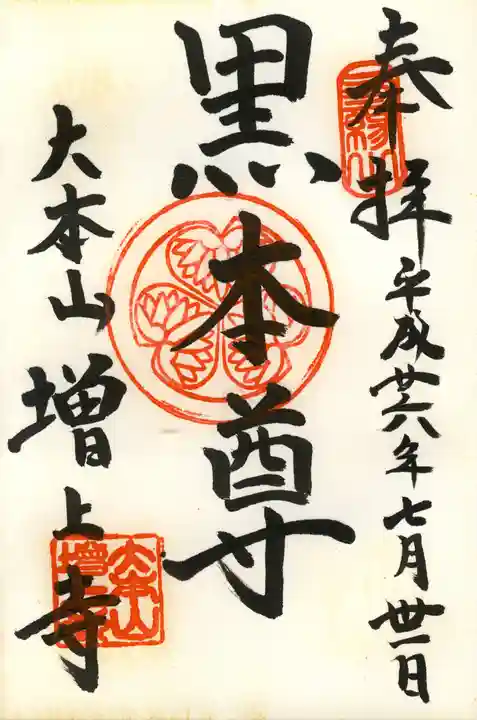 奉拝 平成廿六年七月卅一日
黒本尊
大本山増上寺
大本山
増上寺